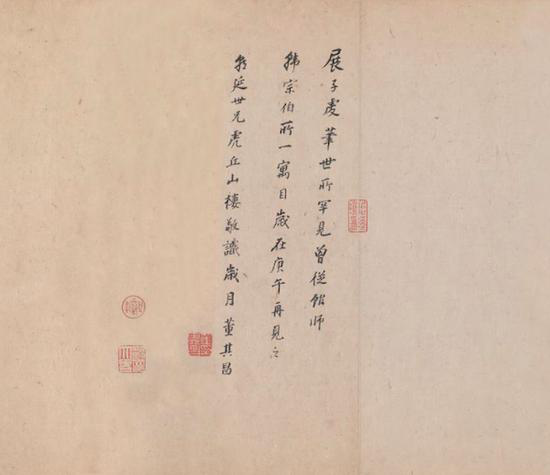 展子虔筆世所罕見曾從館師
韓宗伯所一寓目歲在庚午再見之
朝延世兄虎丘山樓敬識歲月董其昌